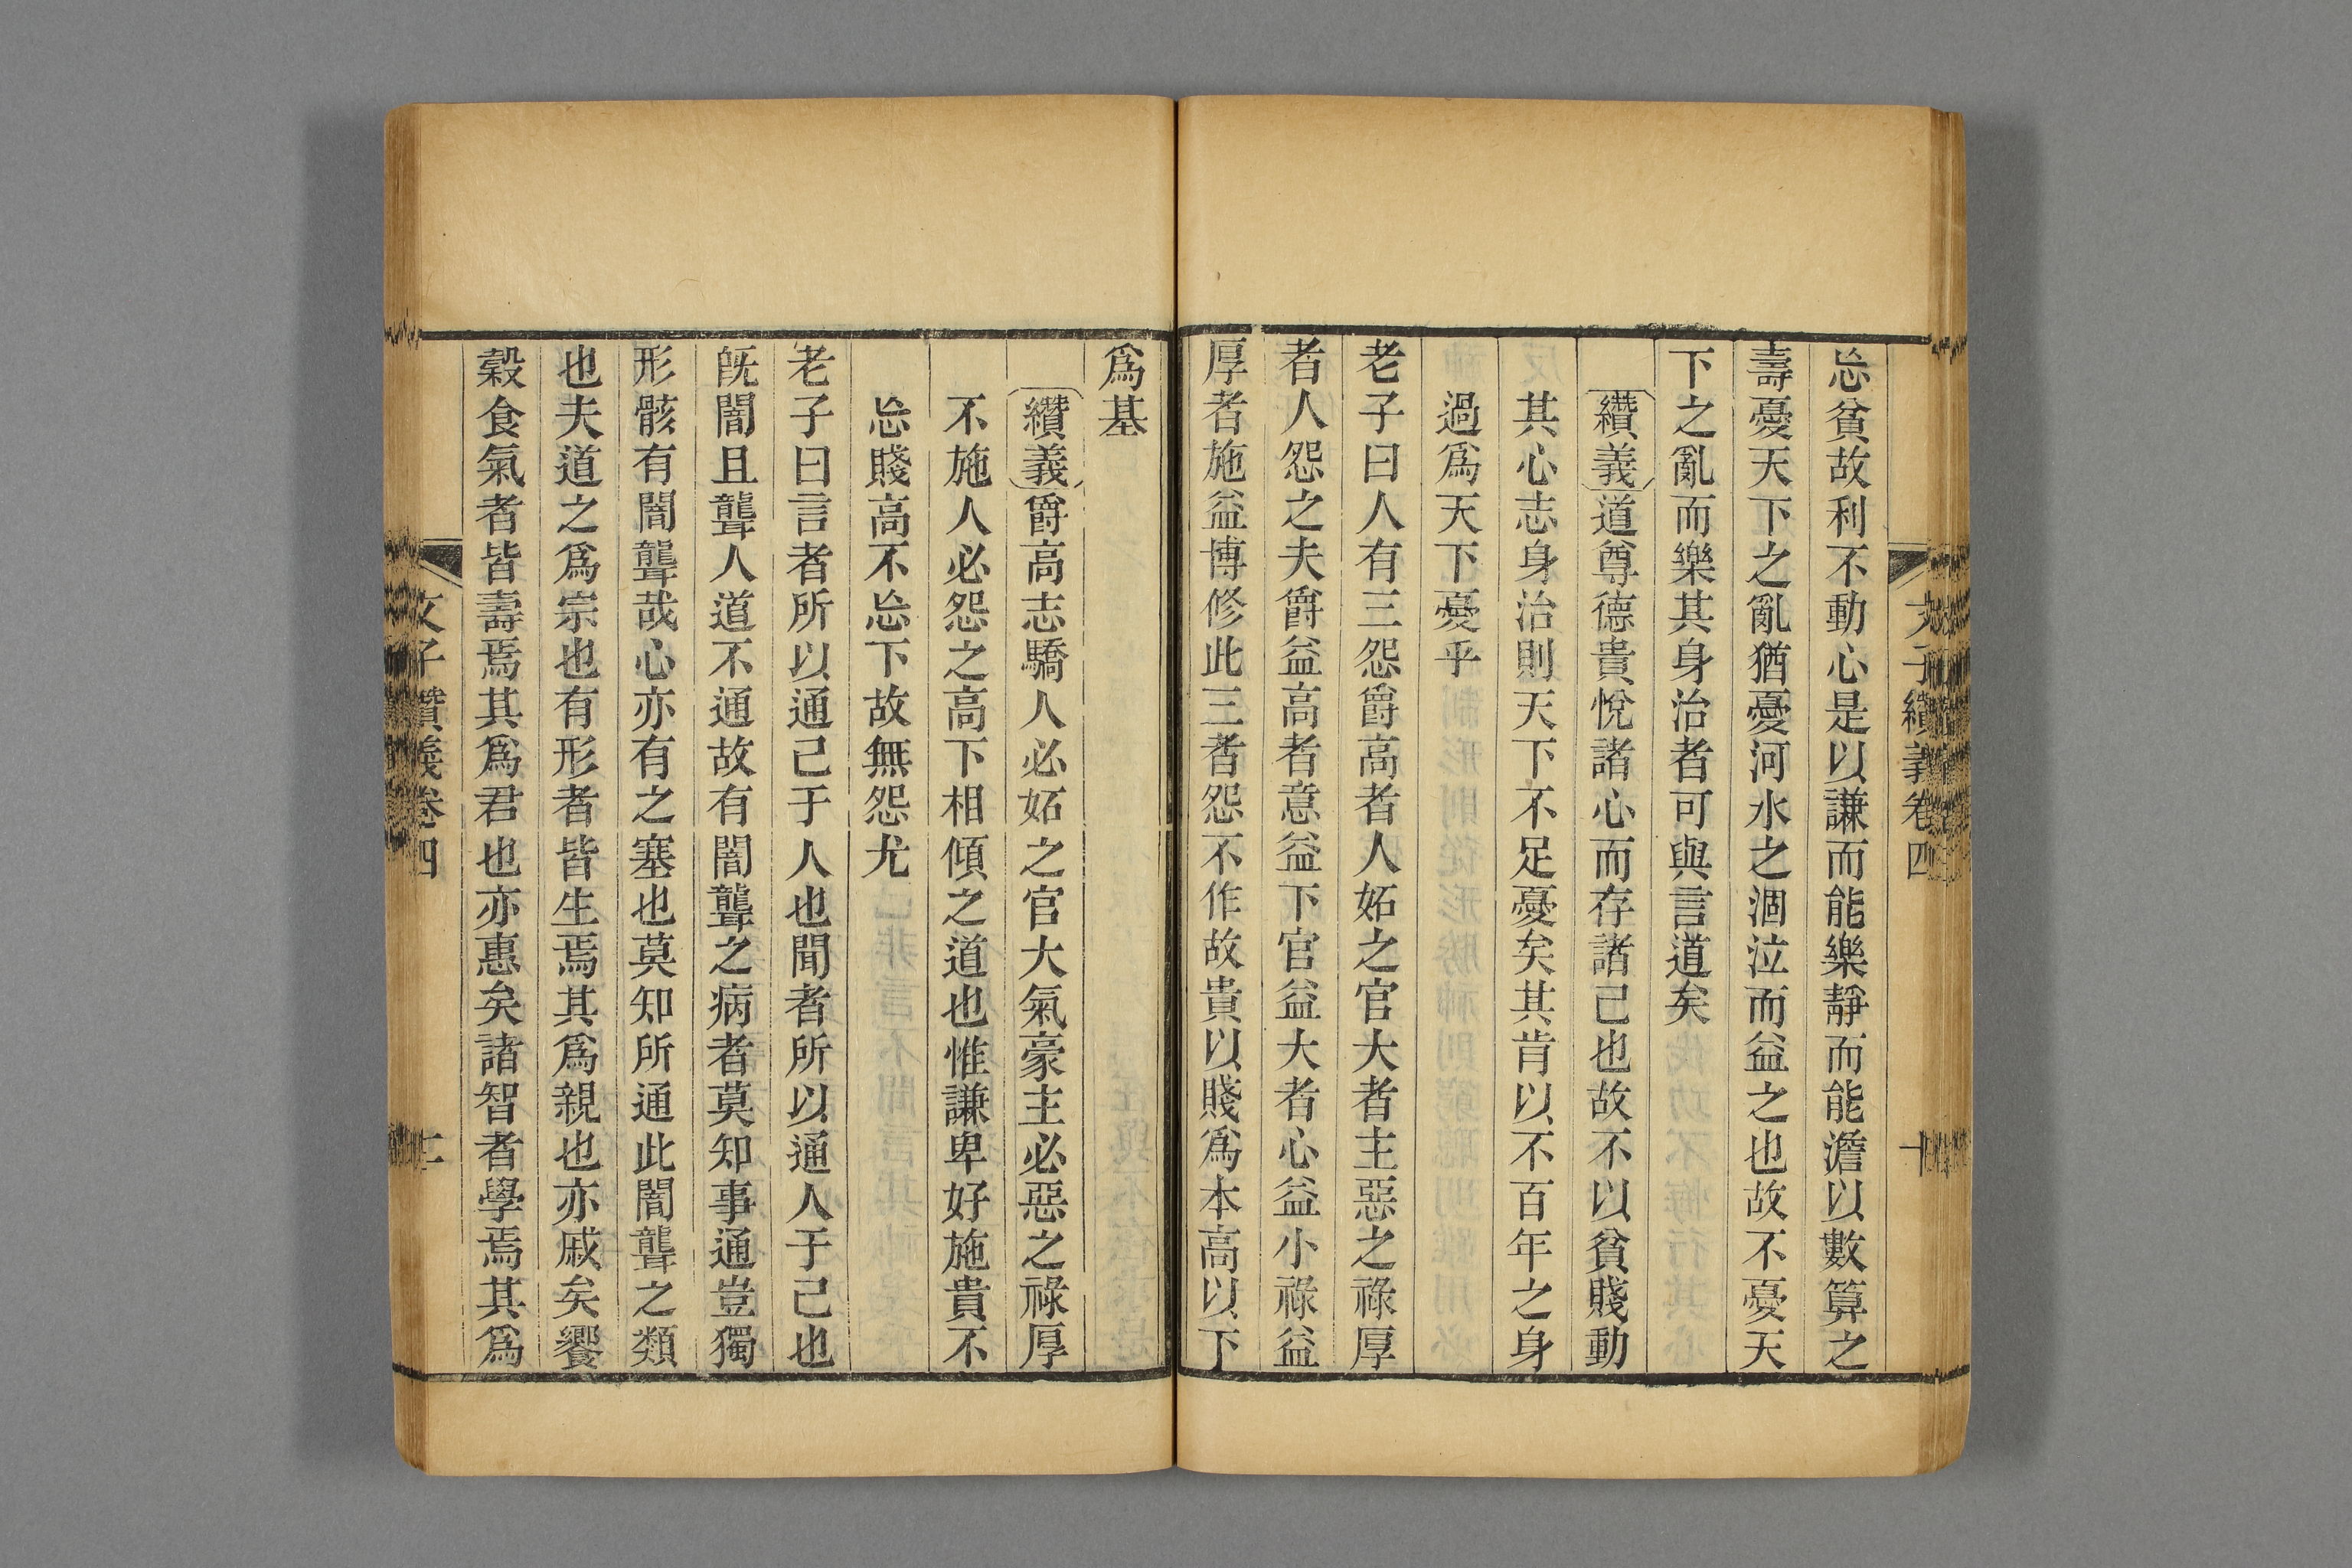 文子纘義卷四 十
忘貧故利不動心是以謙而能樂靜而能澹以數算之
壽憂天下之亂猶憂河水之涸泣而益之也故不憂天
下之亂而樂其身治者可與言道矣
纘義道尊德貴悅諸心而存諸己也故不以貧賤動
其心志身治則天下不足憂矣其肯以不百年之身
過爲天下憂乎
老子曰人有三怨爵高者人妬之官大者主惡之祿厚
者人怨之夫爵益高者意益下官益大者心益小祿益
厚者施益博修此三者怨不作故貴以賤爲本高以下
爲基
纘義爵高志驕人必妬之官大氣豪主必惡之祿厚
不施人必怨之高下相傾之道也惟謙卑好施貴不
忘賤高不忘下故無怨尤
老子曰言者所以通己于人也聞者所以通人于己也
旣闇且聾人道不通故有闇聾之病者莫知事通豈獨
形骸有闇聾哉心亦有之塞也莫知所通此闇聾之類
也夫道之爲宗也有形者皆生焉其爲親也亦戚矣饗
穀食氣者皆壽焉其爲君也亦惠矣諸智者學焉其爲
文子纘義卷四